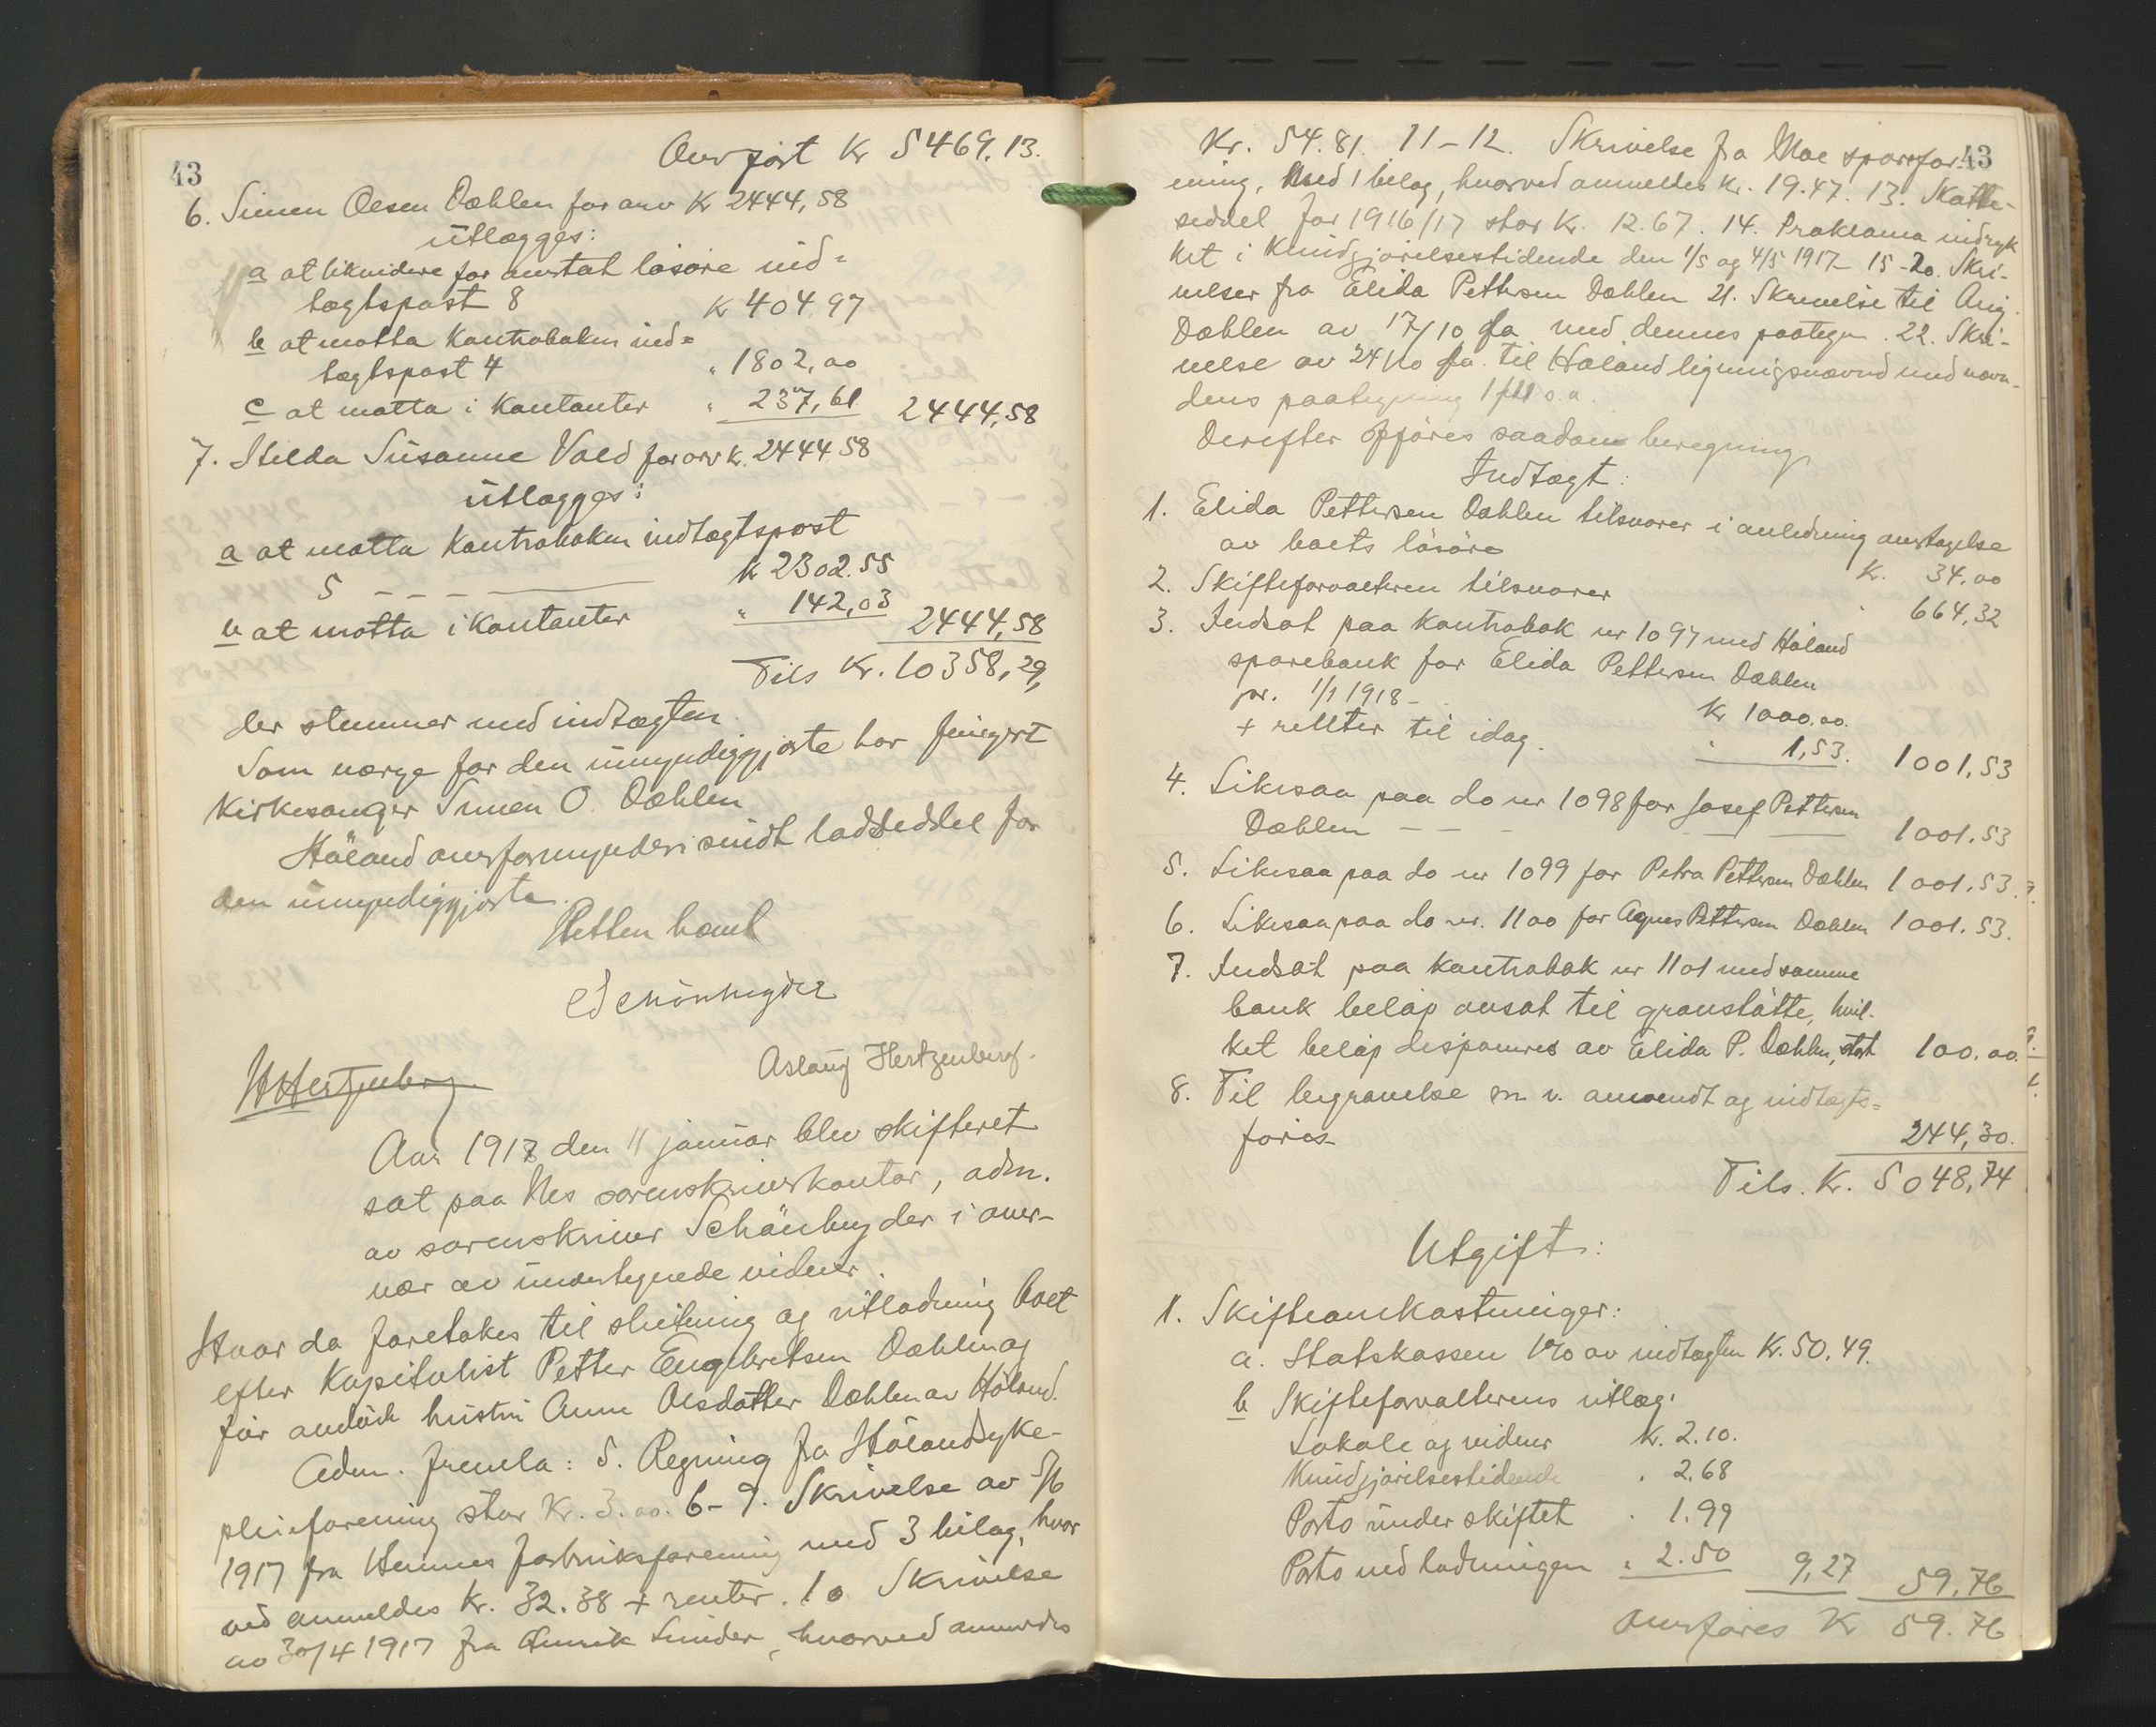 43
Overført Kr 5469.13.
6. Simen Olsen Dæhlen for arv Kr 2444,58
utlægges:
a at likvidere for overtat løsøre ind=
tægtspost 8 Kr 404.97
b at motta Kontraboken ind=
tægtspost 4 " 1802,00
c at motta i Kontanter " 237,61 2444,58
7. Hilda Susanne Vold for arv k. 2444 58
utlægges:
a at motta Kontraboken indtægtspost
5 Kr 2302.55
b at motta i Kontanter " 142,03 2444,58
Tils Kr. 10358,29,
der stemmer med indtægten.
Som værge for den umyndiggjorte har fungert
Kirkesanger Simen O. Dæhlen
Høland overformynderi sendt lodseddel for
den umyndiggjorte.
Retten hævet
Schönheyder
WHertzenberg
Aslaug Hertzenberg.
Aar 1918 den 11 januar blev skifteret
sat paa Nes sorenskriverkontor, adm.
av sorenskriver Schönheyder i over-
vær av undertegnede vidner.
Hvor da foretokes til slutning og utlodning boet
efter Kapitalist Petter Engebretsen Dæhlen og
før avdøde hustru Anne Olsdatter Dæhlen av Høland.
Adm. fremla: 5. Regning fra Høland syke-
pleieforening stor Kr. 3.00. 6-9. Skrivelse av 5/6
1917 fra Hemnes forbruksforening med 3 bilag, hvor
ved anmeldes Kr. 32.38 + renter. 10 Skrivelse
av 30/4 1917 fra Henrik Linder, hvorved anmeldes
43
Kr. 54.81. 11-12. Skrivelse fra Moe sparefor-
ening, med 1 bilag, hvorved anmeldes Kr. 19.47. 13. Skatte-
seddel for 1916/17 stor Kr. 12.67. 14. Proklama indryk
ket i Kundgjørelsestidende den 1/5 og 4/5 1917- 15-20. Skri-
velser fra Elida Pettersen Dæhlen 21. Skrivelse til Aug.
Dæhlen av 17/10 f.a. med dennes paategn. 22. Skri-
velse av 24/10 f.a. til Høland ligningsnævnd med nævn-
dens paategning s.a.
Derefter opføres saadan beregning
Indtægt:
1. Elida Pettersen Dæhlen tilsvarer i anledning overtagelse
av boets løsøre Kr. 34,00
2. Skifteforvalteren tilsvarer " 664,32
3. Indsat paa Kontrabok nr 1097 med Høland
sparebank for Elida Pettersen Dæhlen
pr. 1/1 1918 - Kr 1000.00.
+ renter til idag. " 1,53. 1001,53
4. Likesaa paa do nr 1098 for Josef Pettersen
Dæhlen - - - 1001.53
5. Likesaa paa do nr 1099 for Petra Pettersen Dæhlen 1001.53.
6. Likesaa paa do nr. 1100 for Agnes Pettersen Dæhlen 1001.53.
7. Indsat paa Kontrabok nr 1101 med samme
bank beløp avsat til gravstøtte, hvil-
ket beløp disponeres av Elida P. Dæhlen, stort 100.00.
8. Til begravelse m v. anvendt og indtægts=
føres 244,30.
Tils. Kr. 5048,74
Utgift:
1. Skifteomkostninger:
a. Statskassen 1% av indtægten Kr. 50.49.
b Skifteforvalterens utlæg:
Lokale og vidner Kr. 2.10.
Kundgjørelsestidende " 2.68
Porto under skiftet " 1.99
Porto ved lodningen " 2.50 9,27 59.76
Overføres Kr 59.76